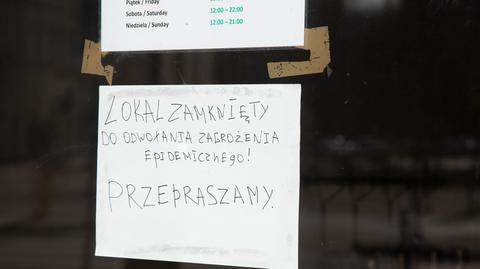 Piątek / Friday 12:00 – 22:00
Sobota / Saturday 12:00 – 22:00
Niedziela / Sunday 12:00 – 21:00
LOKAL ZAMKNIĘTY
DO ODWOŁANIA ZAGROŻENIA
EPIDEMICZNEGO!
PRZEPRASZAMY.